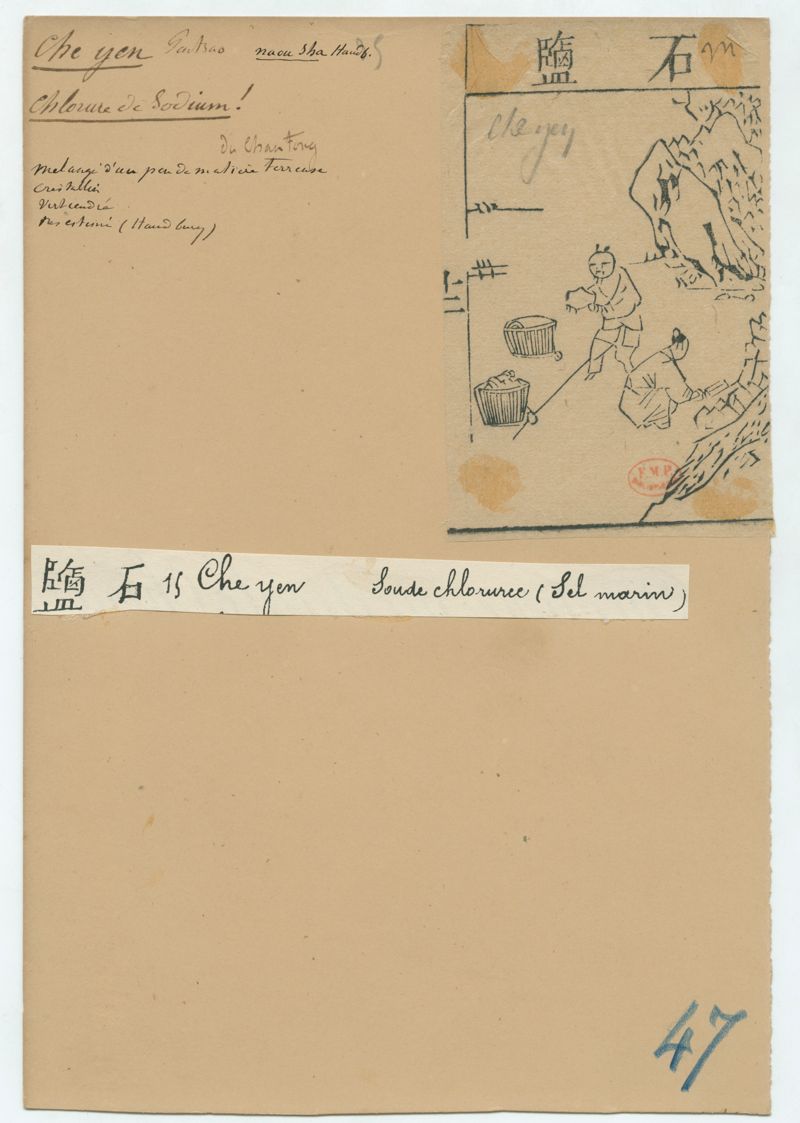 Che yen Pentsao naou Sha Hanb.
Chlorure de Sodium!
du Chan Tong
melangé d'un peu de matiere Terreuse
Cristallin
Verdendre
(Handbury)
鹽 石
Che yen
鹽 石 15 Che yen Soude chlorurée (Sel marin)
47